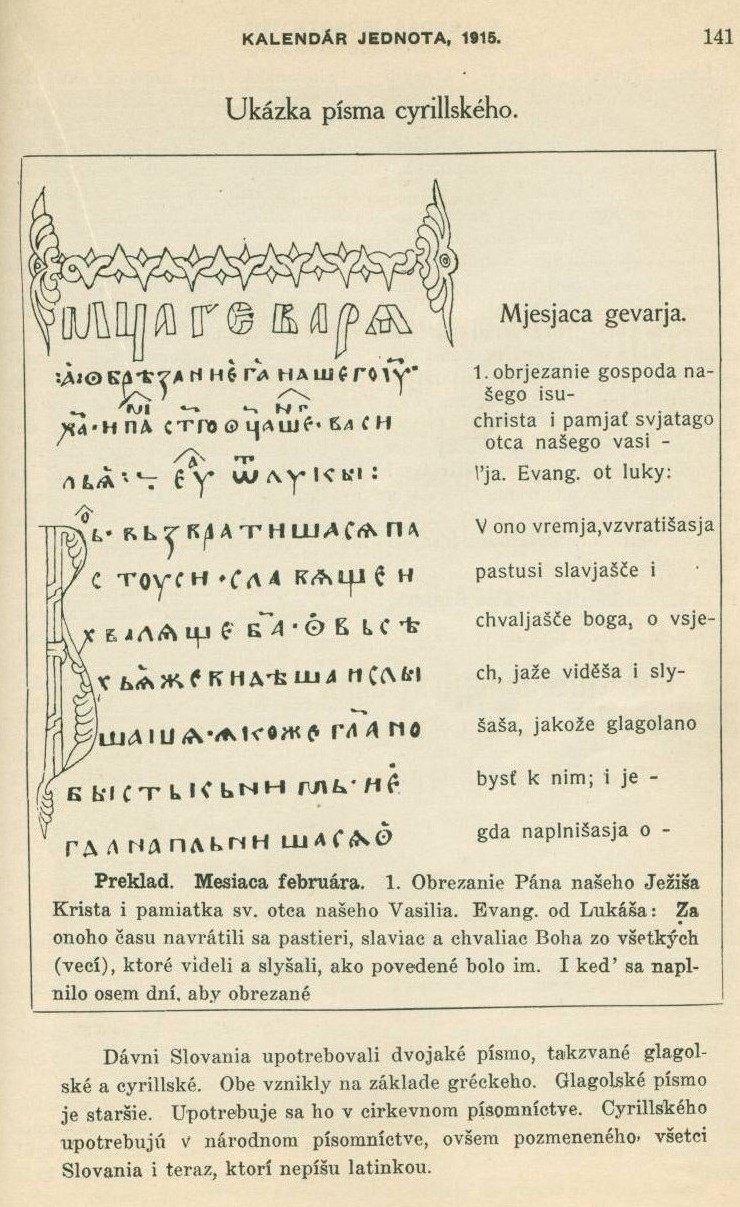 KALENDÁR JEDNOTA, 1915. 141
Ukázka písma cyrillského.
МЦА ГЕВАРѦ
:А҃·ОБРѢꙀАНИЕ ГА НАШЕГО ІУ҃
ХА҃·И ПАМ СТГО ОЦА НАШЕГ·ВАСИ
ЛЬꙗ:· ЕУА ѾЛУКЫ:
ВЬО·ВЬꙀВРАТИША СѦ ПА
СТОУСИ·СЛАВѦЩЕ И
ХВАЛѦЩЕ БА҃·О ВЬСѢ
ХЬꙗЖЕ ВИДѢША И СЛЫ
ШАША·ѦКОЖЕ ГЛ҃АНО
БЫСТЬ КЬ НИМЬ·И Е
ГДА НАПЛЬНИША СѦ О
Mjesjaca gevarja.
1. obrjezanie gospoda na-
šego isu-
christa i pamjať svjatago
otca našego vasi -
l'ja. Evang. ot luky:
V ono vremja,vzvratišasja
pastusi slavjašče i
chvaljašče boga, o vsje-
ch, jaže viděša i sly-
šaša, jakože glagolano
bysť k nim; i je -
gda naplnišasja o -
Preklad. Mesiaca februára. 1. Obrezanie Pána našeho Ježiša
Krista i pamiatka sv. otca našeho Vasilia. Evang. od Lukáša: Za
onoho času navrátili sa pastieri, slaviac a chvaliac Boha zo všetkých
(vecí), ktoré videli a slyšali, ako povedené bolo im. I keď sa napl-
nilo osem dní, aby obrezané
Dávni Slovania upotrebovali dvojaké písmo, takzvané glagol-
ské a cyrillské. Obe vznikly na základe gréckeho. Glagolské písmo
je staršie. Upotrebuje sa ho v cirkevnom písomníctve. Cyrillského
upotrebujú v národnom písomníctve, ovšem pozmeneného, všetci
Slovania i teraz, ktorí nepíšu latinkou.